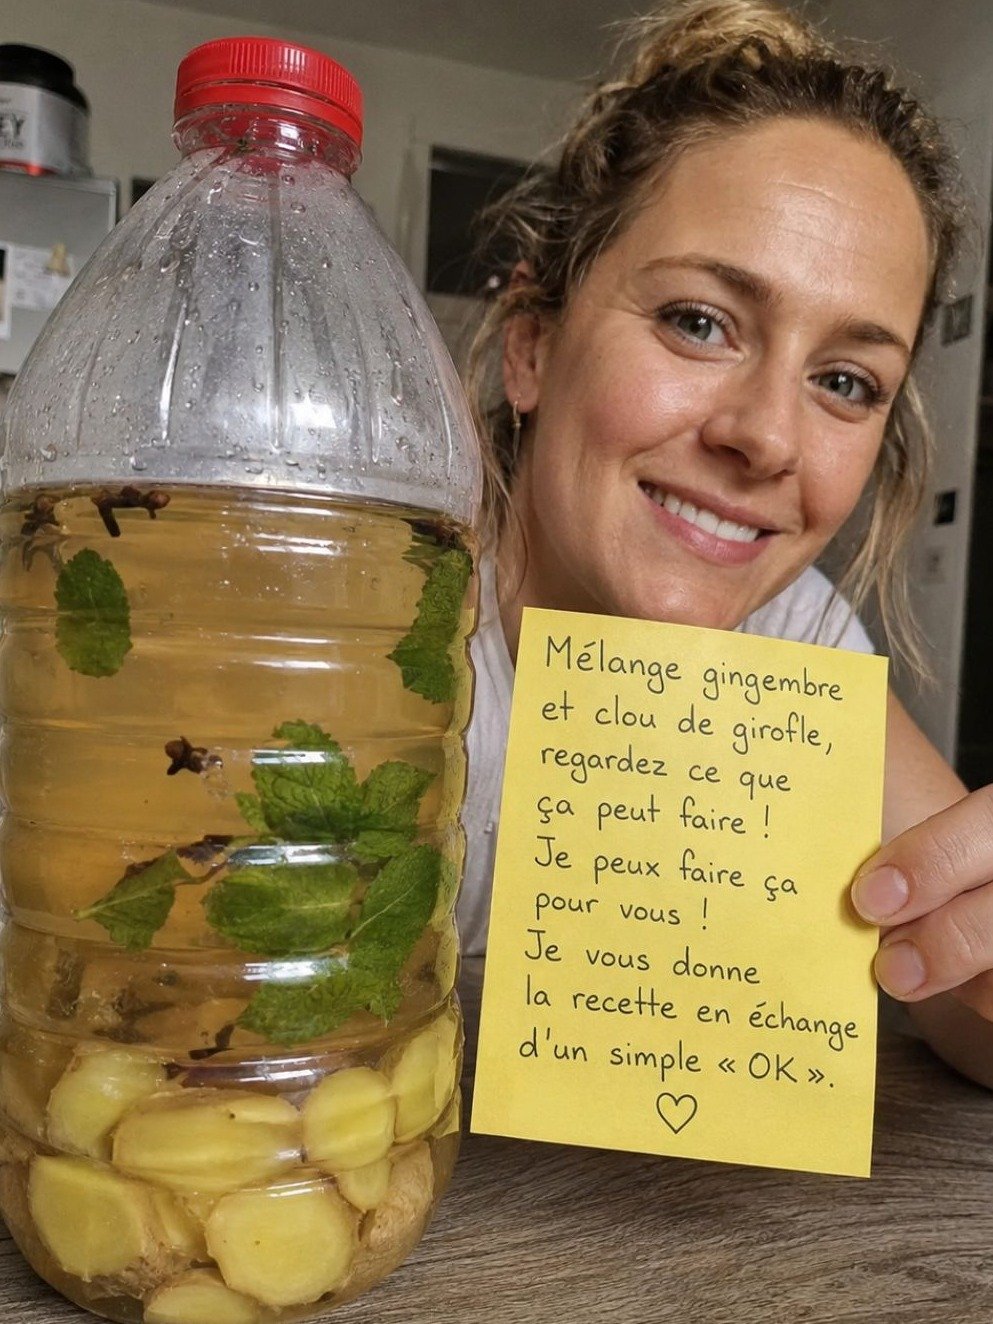 EY
Mélange gingembre
et clou de girofle,
regardez ce que
ça peut faire !
Je peux faire ça
pour vous !
Je vous donne
la recette en échange
d'un simple « OK ».